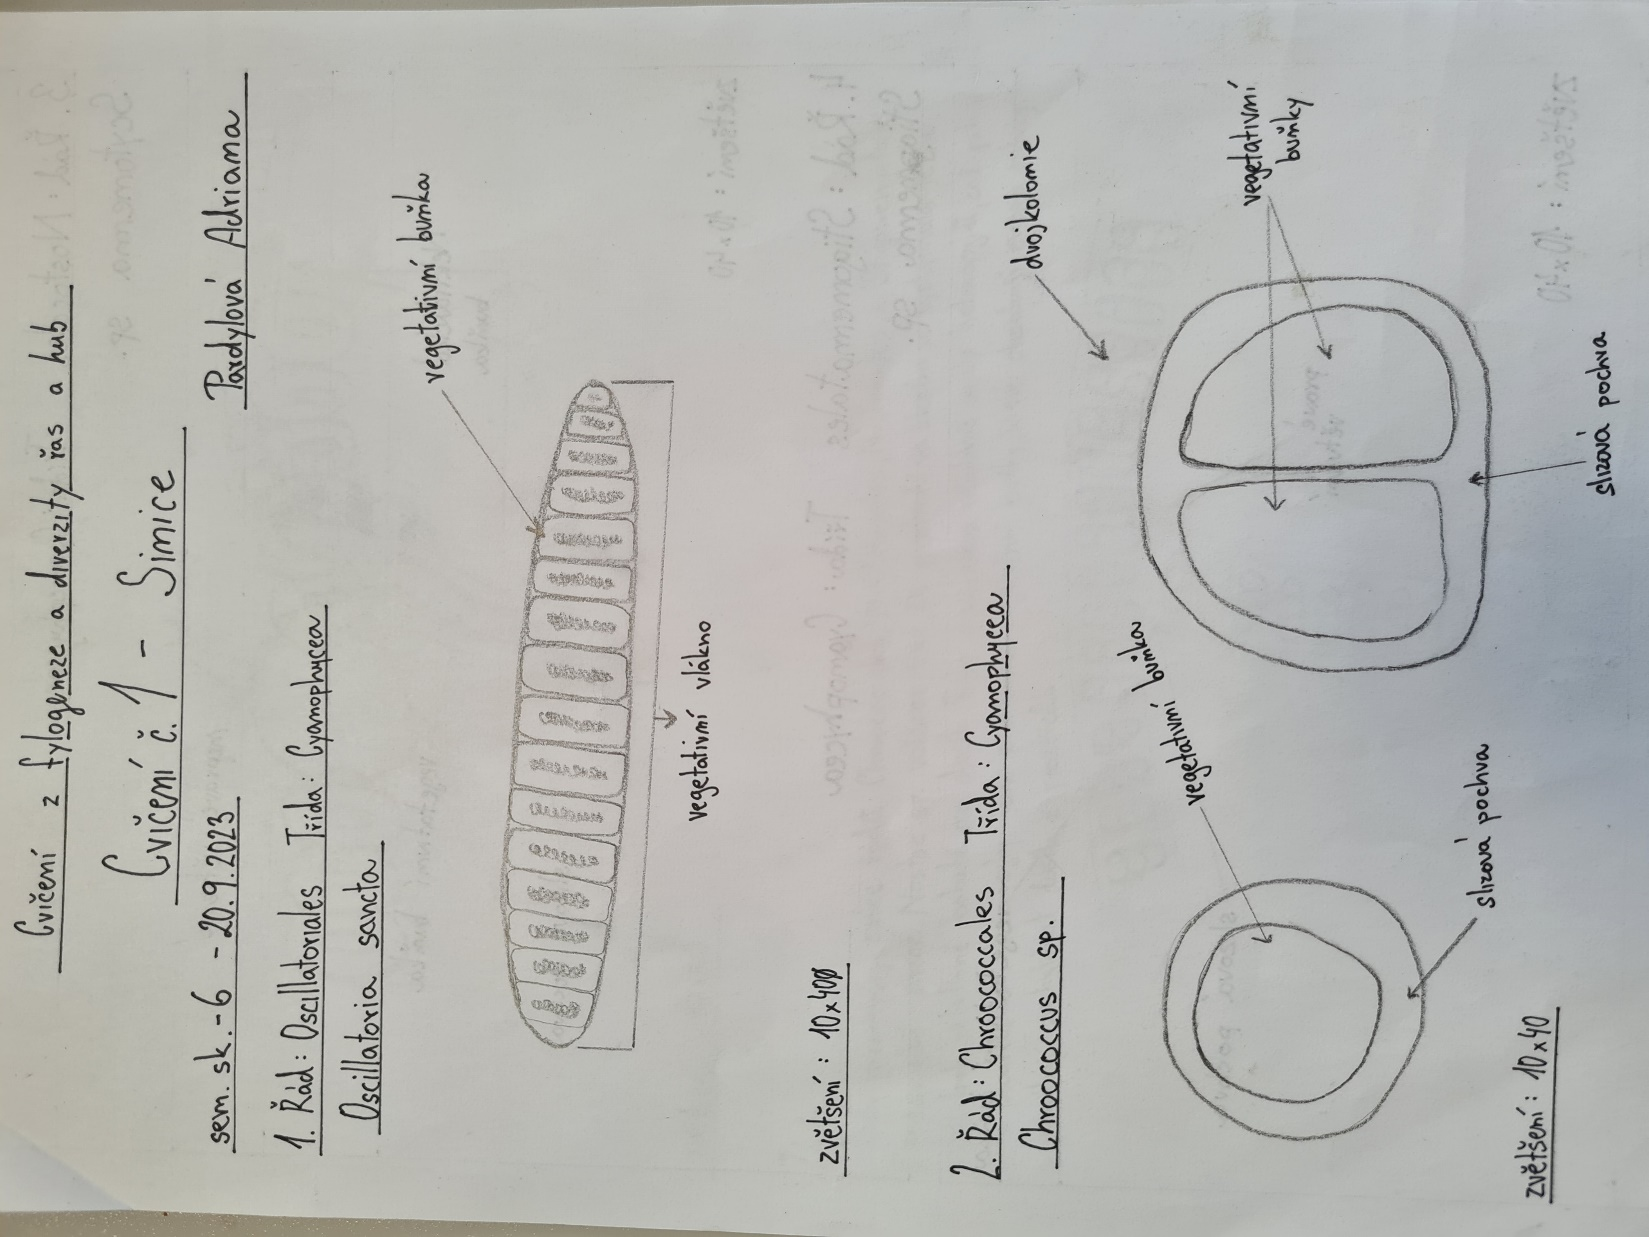 Cvičení z fylogeneze a diverzity řas a hub
Cvičení č. 1 - Sinice
sem. sk. - 6 - 20.9.2023
Pardylová Adriana
1. Řád: Oscillatoriales Třída: Cyanophycea
Oscillatoria sancta
vegetativní buňka
vegetativní vlákno
zvětšení: 10x40
2. Řád: Chroococcales Třída: Cyanophycea
Chroococcus sp.
dvojkolonie
vegetativní buňka
vegetativní
buňky
slizová pochva
slizová pochva
zvětšení: 10x40